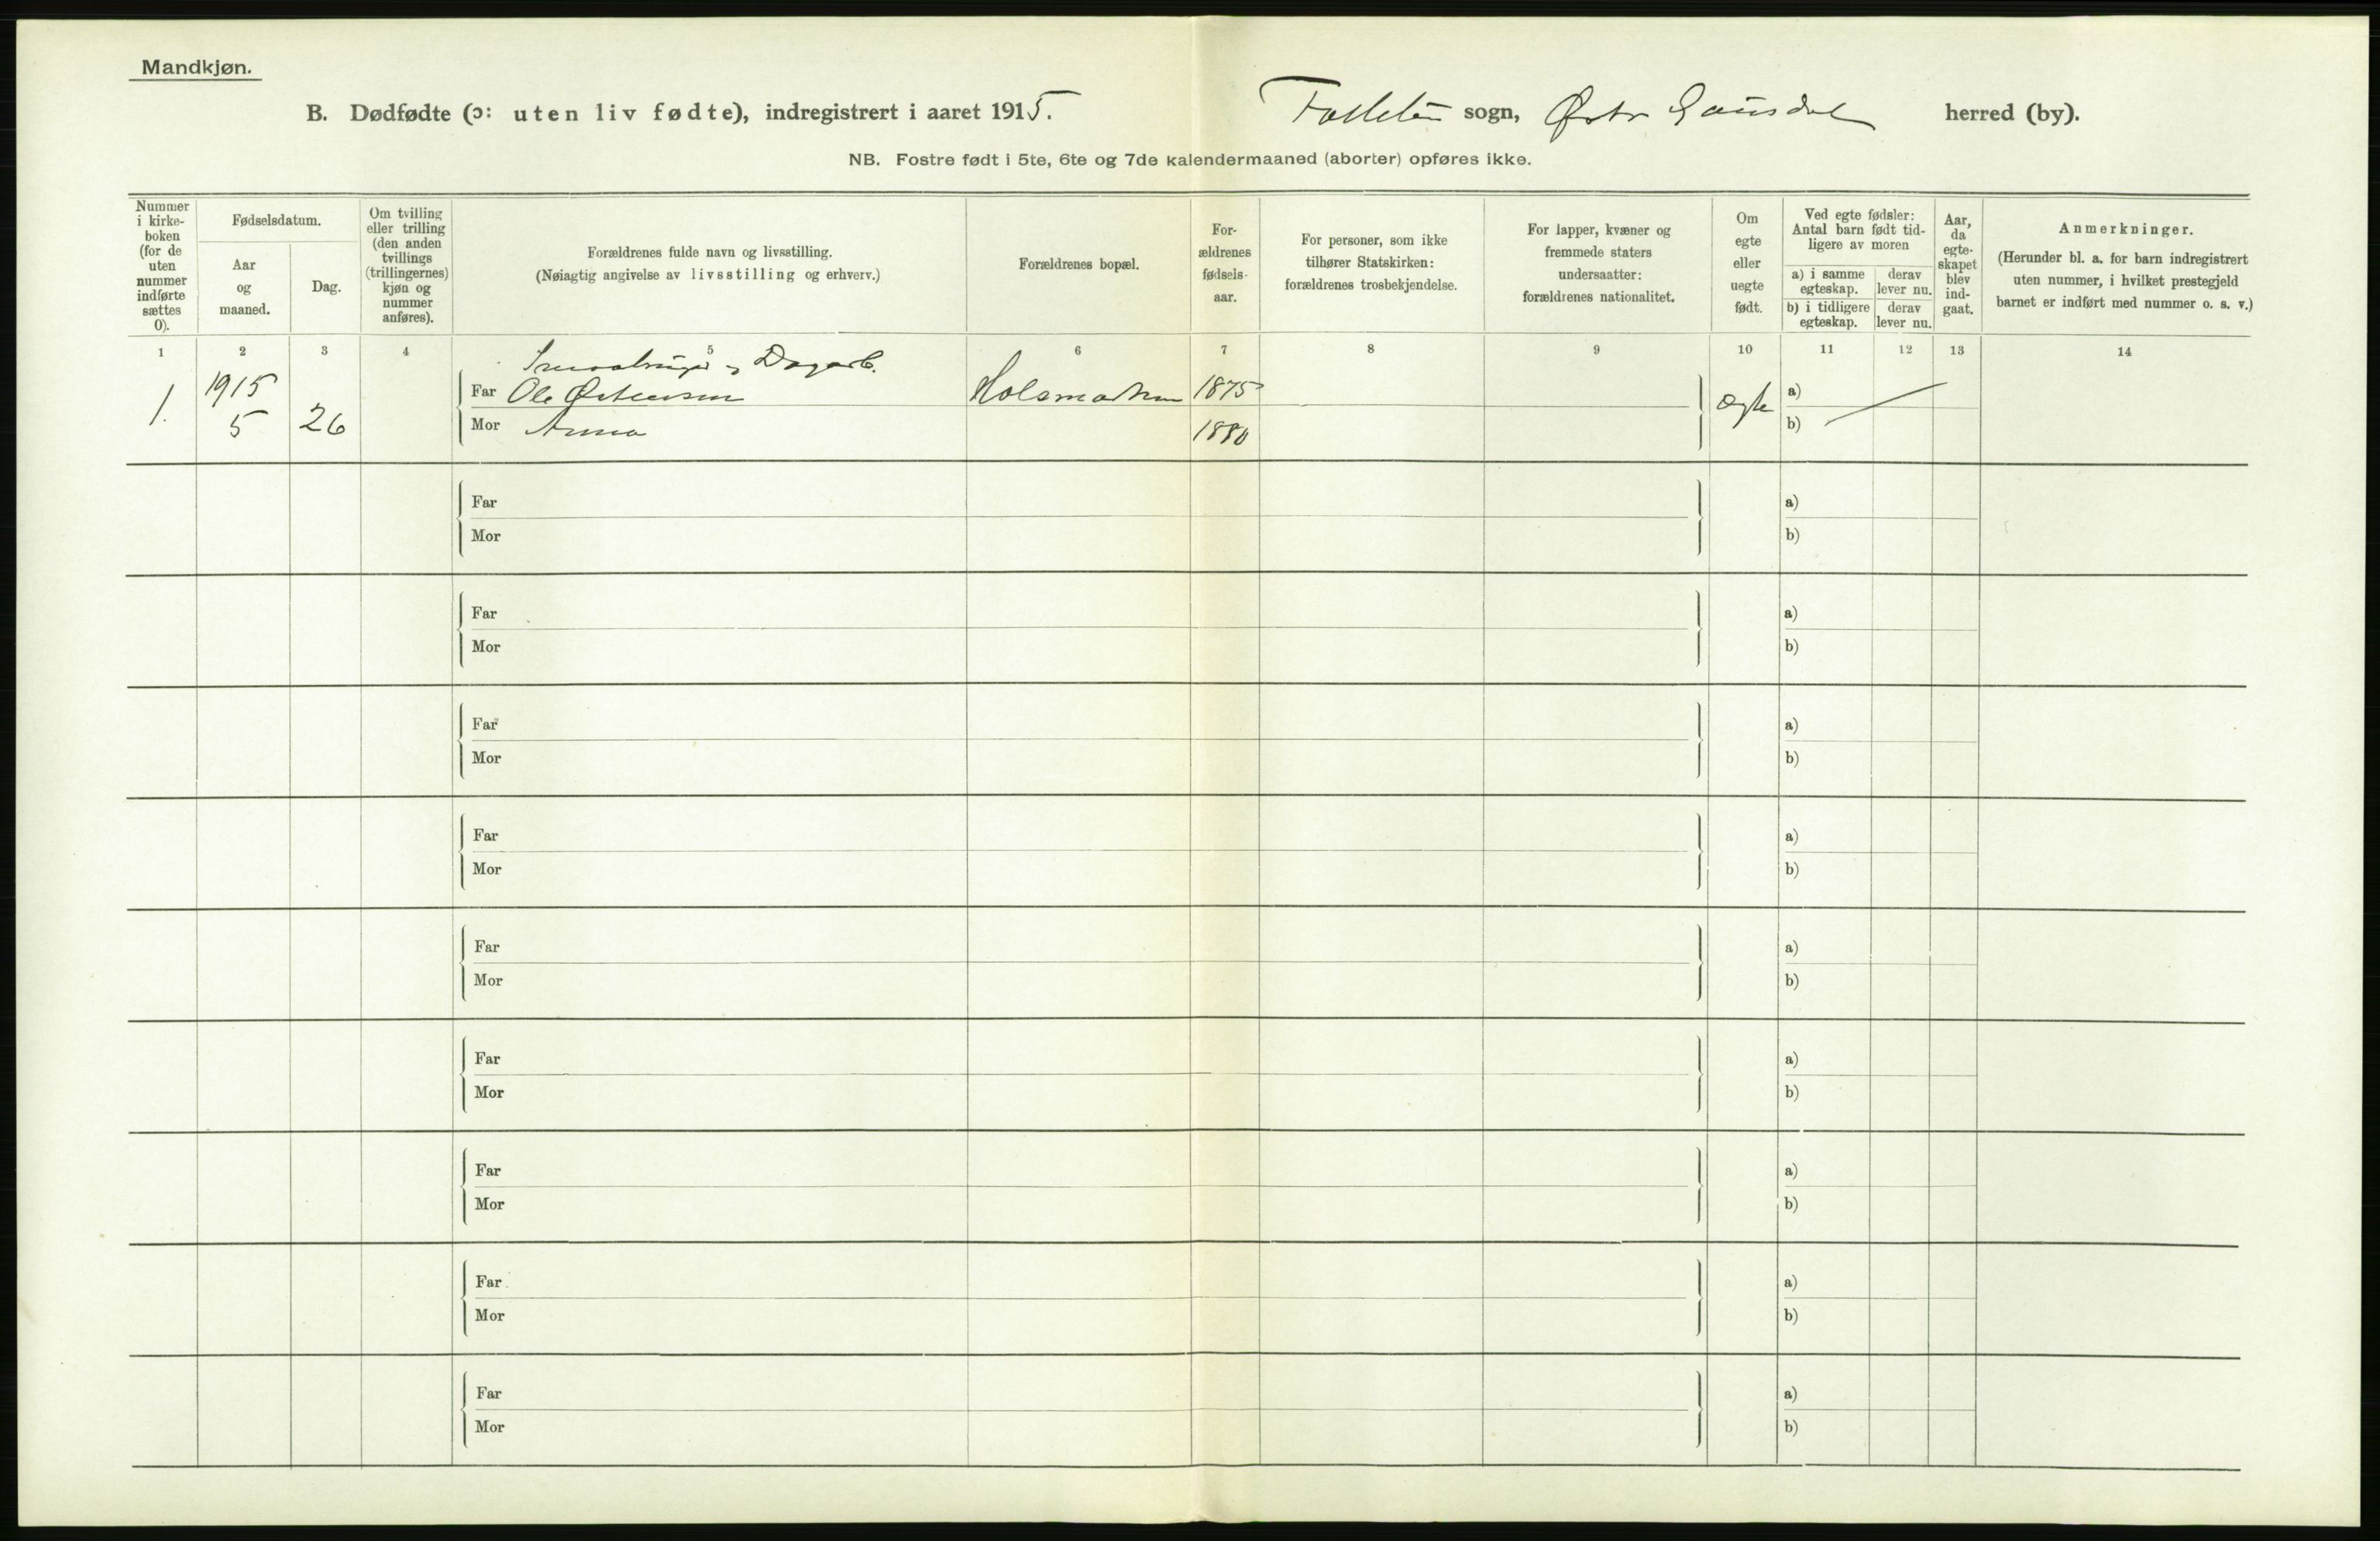 Mandkjøn.
B. Dødfødte (ɔ: uten liv fødte), indregistrert i aaret 1915. Follebu sogn, Østr Gausdal herred (by).
NB. Fostre født i 5te, 6te og 7de kalendermaaned (aborter) opføres ikke.
Nummer i kirke-boken (for de uten nummer indførte sættes 0).
Fødselsdatum.
Aar og maaned.
Dag.
Om tvilling eller trilling (den anden tvillings (trillingernes) kjøn og nummer anføres).
Forældrenes fulde navn og livsstilling.
(Nøiagtig angivelse av livsstilling og erhverv.)
Forældrenes bopæl.
For-ældrenes fødsels-aar.
For personer, som ikke tilhører Statskirken: forældrenes trosbekjendelse.
For lapper, kvæner og fremmede staters undersaatter: forældrenes nationalitet.
Om egte eller uegte født.
Ved egte fødsler: Antal barn født tid-ligere av moren
a) i samme egteskap.
derav lever nu.
b) i tidligere egteskap.
derav lever nu.
Aar, da egte-skapet blev ind-gaat.
Anmerkninger.
(Herunder bl. a. for barn indregistrert uten nummer, i hvilket prestegjeld barnet er indført med nummer o. s. v.)
1 2 3 4 5 6 7 8 9 10 11 12 13 14
Smaabruger og Dagarb.
1. 1915 5 26 Far Ole Østensen Holsmarken 1875 Ægte a)
Mor Anna 1880 b)
Far a)
Mor b)
Far a)
Mor b)
Far a)
Mor b)
Far a)
Mor b)
Far a)
Mor b)
Far a)
Mor b)
Far a)
Mor b)
Far a)
Mor b)
Far a)
Mor b)